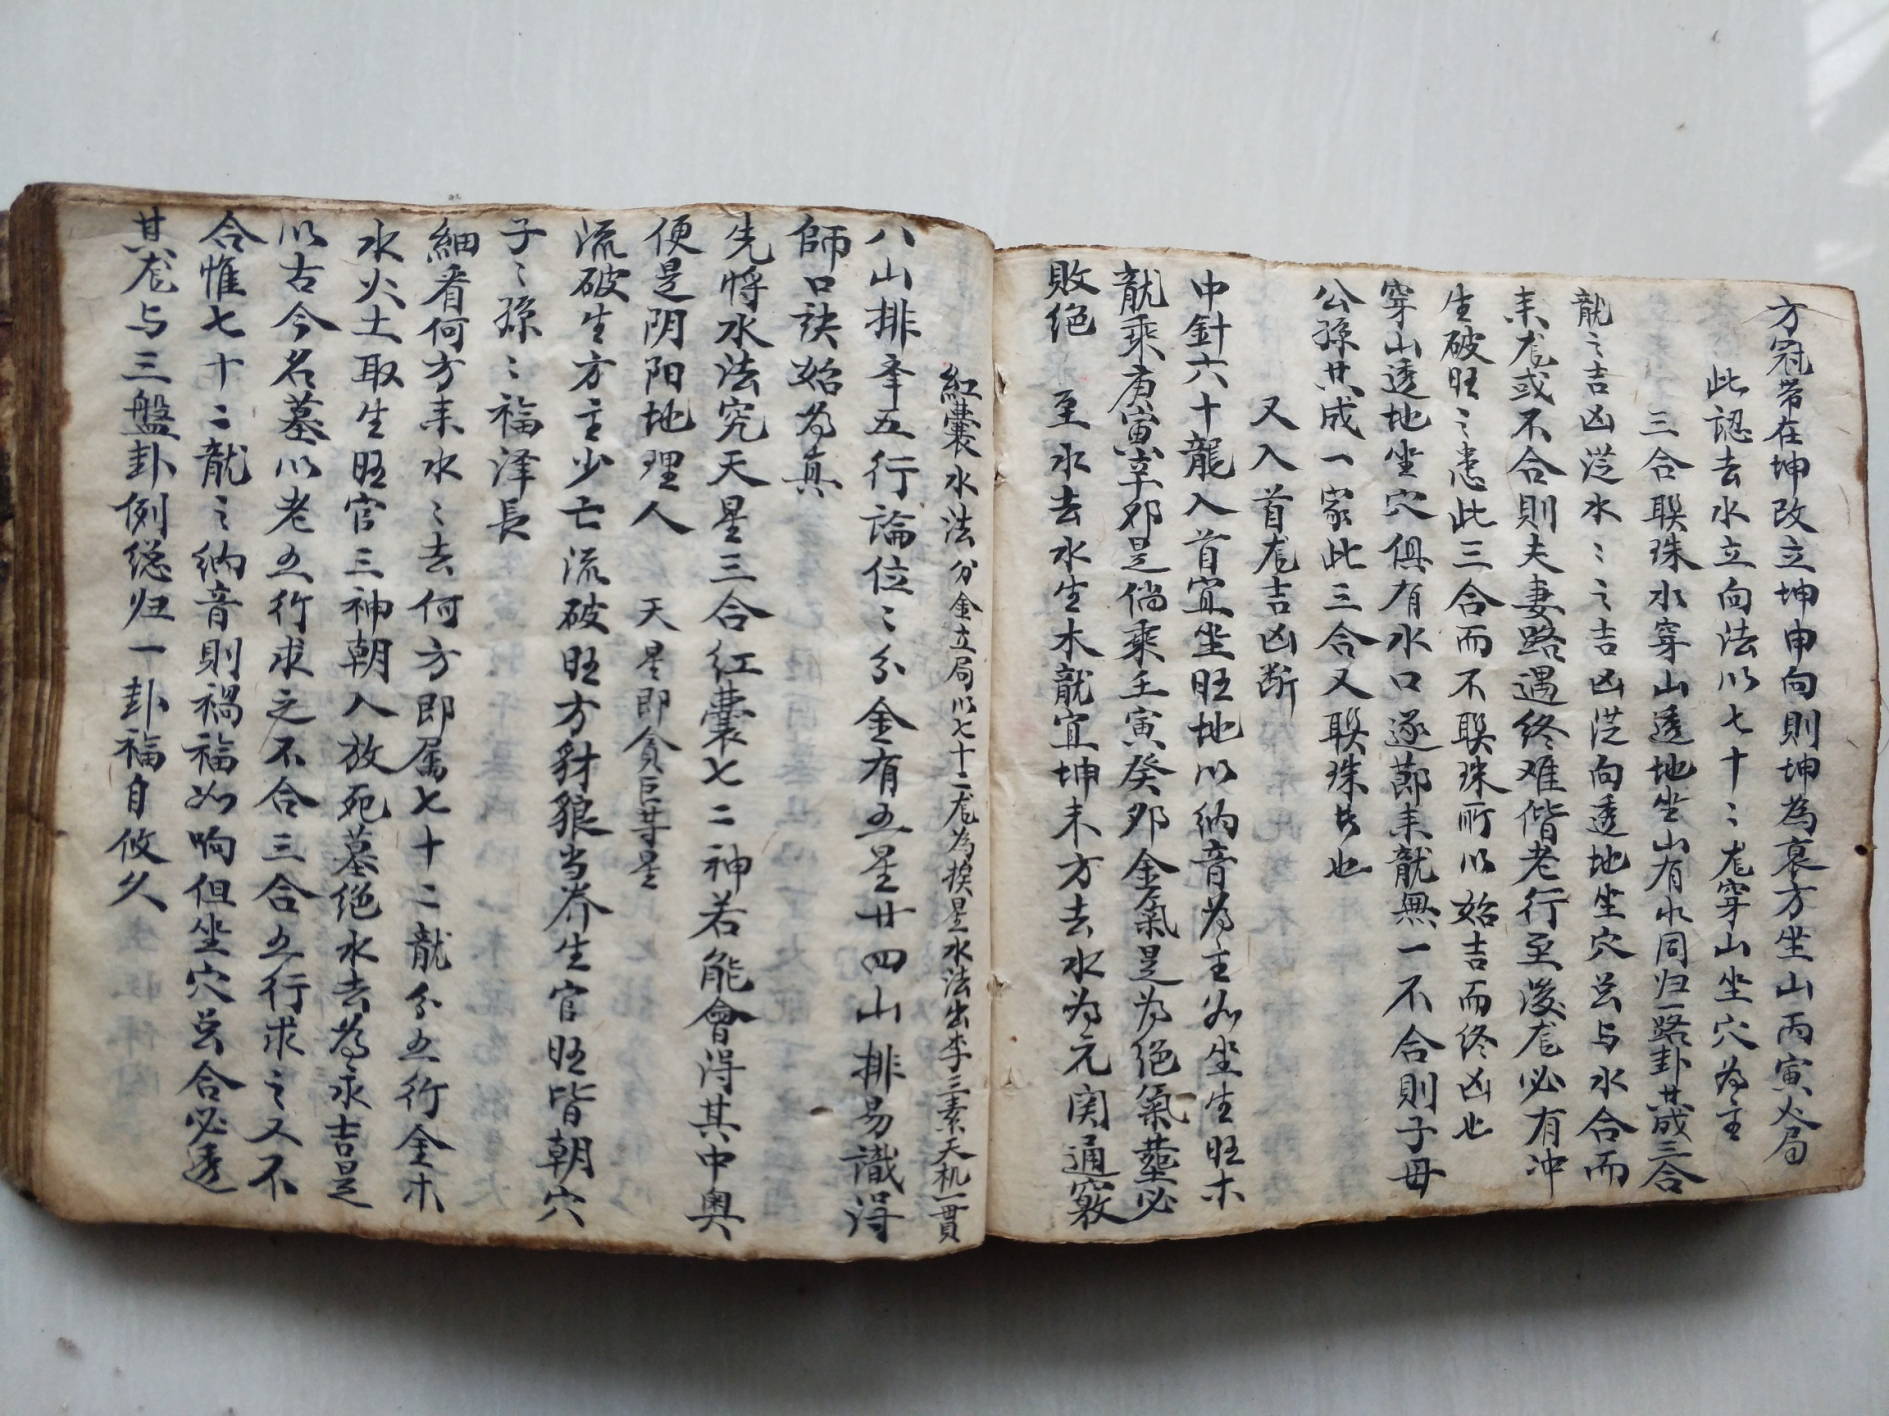 方冠带在坤改立坤申向則坤為衰方坐山丙寅火局
此認去水立向法以七十二龙穿山坐穴為主
三合聯珠水穿山透地坐山有水同归一路卦共成三合
龍之吉凶从水水之吉凶从向透地坐穴总与水合而
来龙或不合則夫妻路遇终难偕老行至後龙必有冲
生破旺之患此三合而不联珠所以始吉而终凶也
穿山透地坐穴俱有水口遂莭来龍無一不合則子母
公孫共成一家此三合又联珠者也
又入首龙吉凶断
中針六十龍入首宜坐旺地以納音為主如坐生旺木
龍乘庚寅辛卯是倘乘壬寅癸卯金氣是為绝氣塟必
敗绝 至水去水生木龍宜坤未方去水為元関通竅
紅囊水法分金立局以七十二龙為揆星水法出李三素天机一貫
八山排夆五行論位位分金有五星廿四山排易識得
師口訣始為真
先將水法究天星三合红囊七二神若能會得其中奥
便是阴阳地理人 天星即貪巨等星
流破生方主少亡流破旺方豺狼当养生官旺皆朝穴
子子孫孫福泽長
細看何方来水水去何方即属七十二龍分五行金木
水火土取生旺官三神朝入放死墓绝水去為永吉是
以古今名墓以老五行求之不合三合五行求之又不
合惟七十二龍之納音則禍福如响但坐穴总合必透
其龙与三盤卦例総归一卦福自攸久